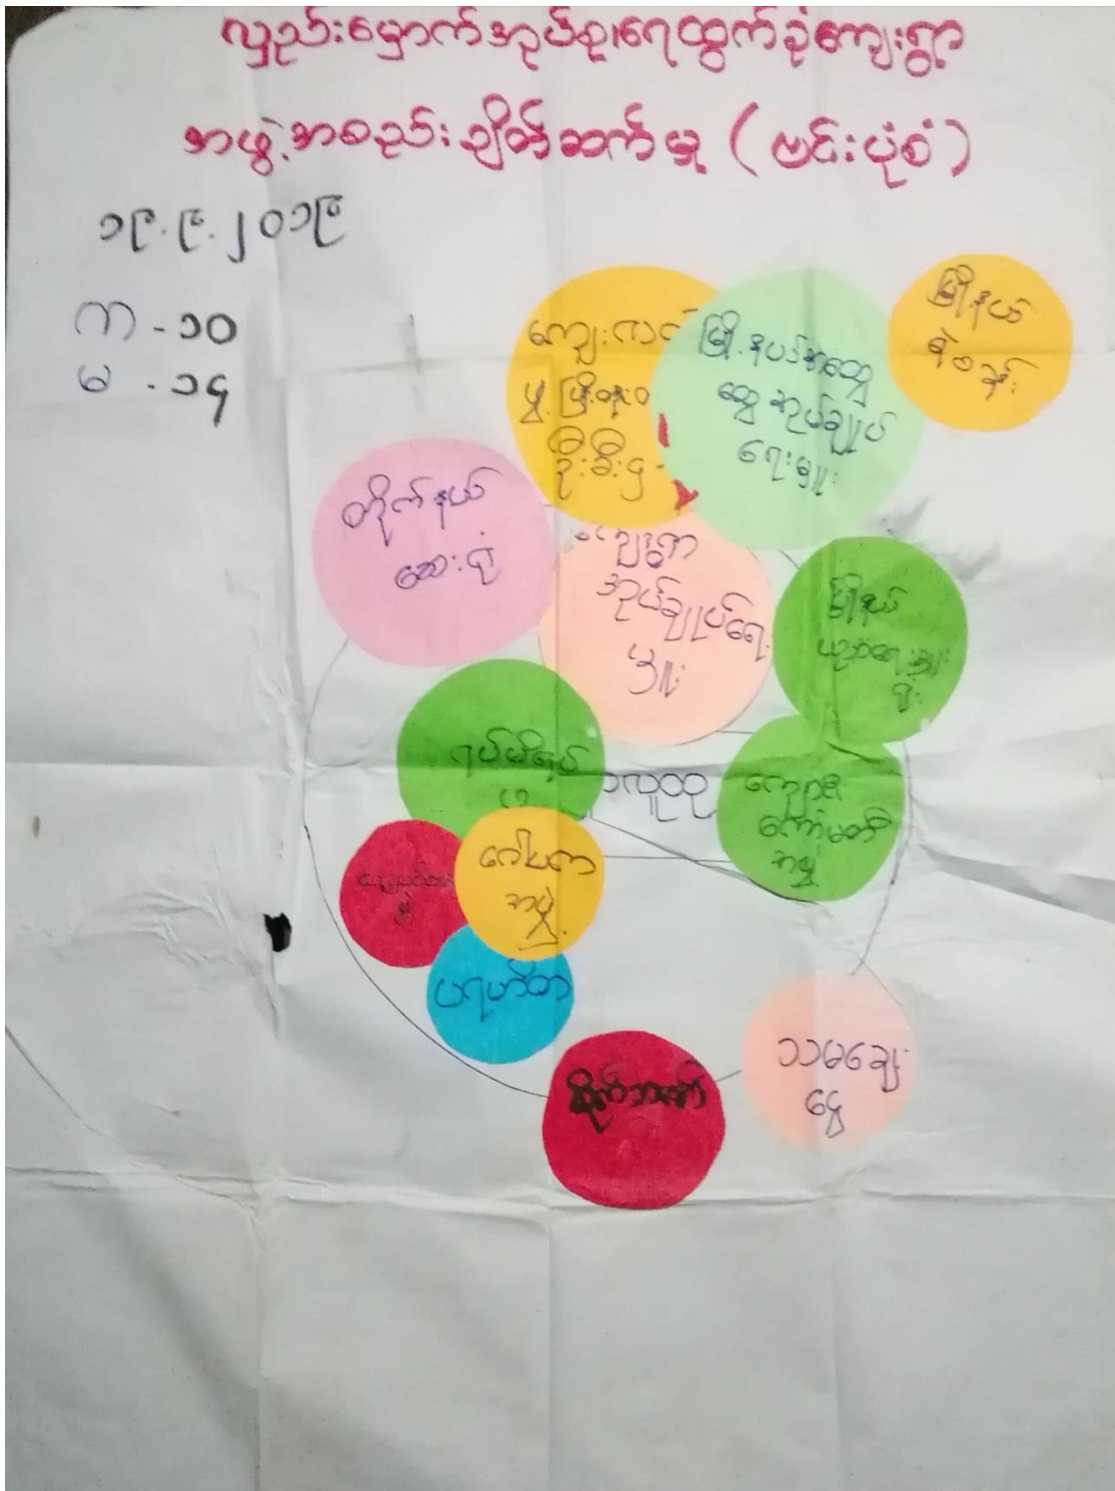 လှည်းမှောက်အုပ်စု၊ရေထွက်ခုံကျေးရွာ
အဖွဲ့အစည်းချိတ်ဆက်မှု (ဗင်းပုံစံ)
၁၉.၉.၂၀၁၉
က - ၁၀
မ - ၁၄
ကျေးလက်
ဖွံ့ဖြိုးတိုး
ဦးစီးဌ
မြို့နယ်အထွေ
ထွေအုပ်ချုပ်
ရေးမှူး
မြို့နယ်
ရဲစခန်း
တိုက်နယ်
ဆေးရုံ
ကျေးရွာ
အုပ်ချုပ်ရေး
မှူး
မြို့နယ်
ပညာရေးမှူး
ရုံး
ရပ်မိရပ်
ဖ
လူထု
ကျောင်း
ကော်မတီ
အဖွဲ့
ဂေါပက
အဖွဲ့
ပရဟိတ
စိုက်ဘဏ်
သမချေး
ငွေ